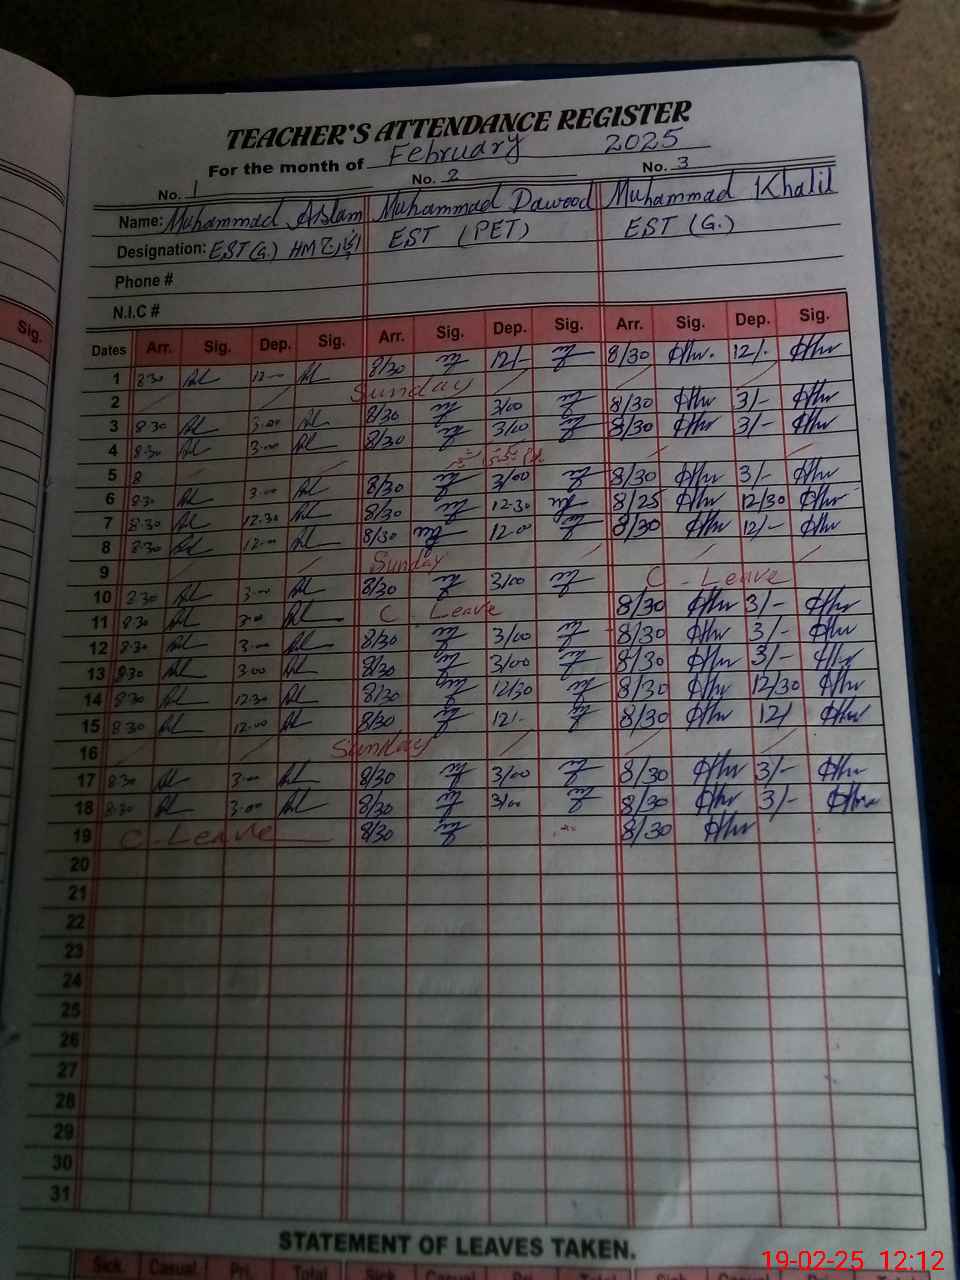 TEACHER'S ATTENDANCE REGISTER
For the month of February 2025
No. 1 No. 2 No. 3
Name: Muhammad Aslam Muhammad Dawood Muhammad Khalil
Designation: EST(G.) HM EST (PET) EST (G.)
Phone #
N.I.C #
Sig.
Dates Arr. Sig. Dep. Sig. Arr. Sig. Dep. Sig. Arr. Sig. Dep. Sig.
1 8:30 12-00 8/30 12/- 8/30 12/-
2 Sunday
3 8:30 3-00 8/30 3/00 8/30 3/-
4 8:30 3-00 8/30 3/00 8/30 3/-
5 8
6 8:30 3-00 8/30 3/00 8/30 3/-
7 8:30 12-30 8/30 12-30 8/25 12/30
8 8:30 12-00 8/30 12-00 8/30 12/-
9 Sunday
10 8:30 3-00 8/30 3/00 C - Leave
11 8:30 3-00 C - Leave 8/30 3/-
12 8:30 3-00 8/30 3/00 8/30 3/-
13 8:30 3-00 8/30 3/00 8/30 3/-
14 8:30 12-30 8/30 12/30 8/30 12/30
15 8:30 12-00 8/30 12/- 8/30 12/
16 Sunday
17 8:30 3-00 8/30 3/00 8/30 3/-
18 8:30 3-00 8/30 3/00 8/30 3/-
19 C - Leave 8/30 8/30
20
21
22
23
24
25
26
27
28
29
30
31
STATEMENT OF LEAVES TAKEN.
Sick Casual Pri. Total Sick Casual Pri. Total Sick Casual Pri. Total
19-02-25 12:12